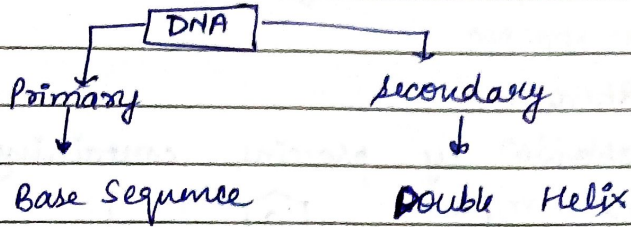 DNA
Primary Secondary
Base Sequence Double Helix